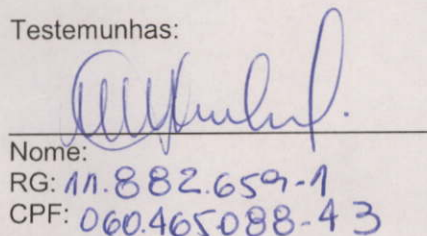 Testemunhas:
Nome:
RG: 11.882.659-1
CPF: 060.465088-43